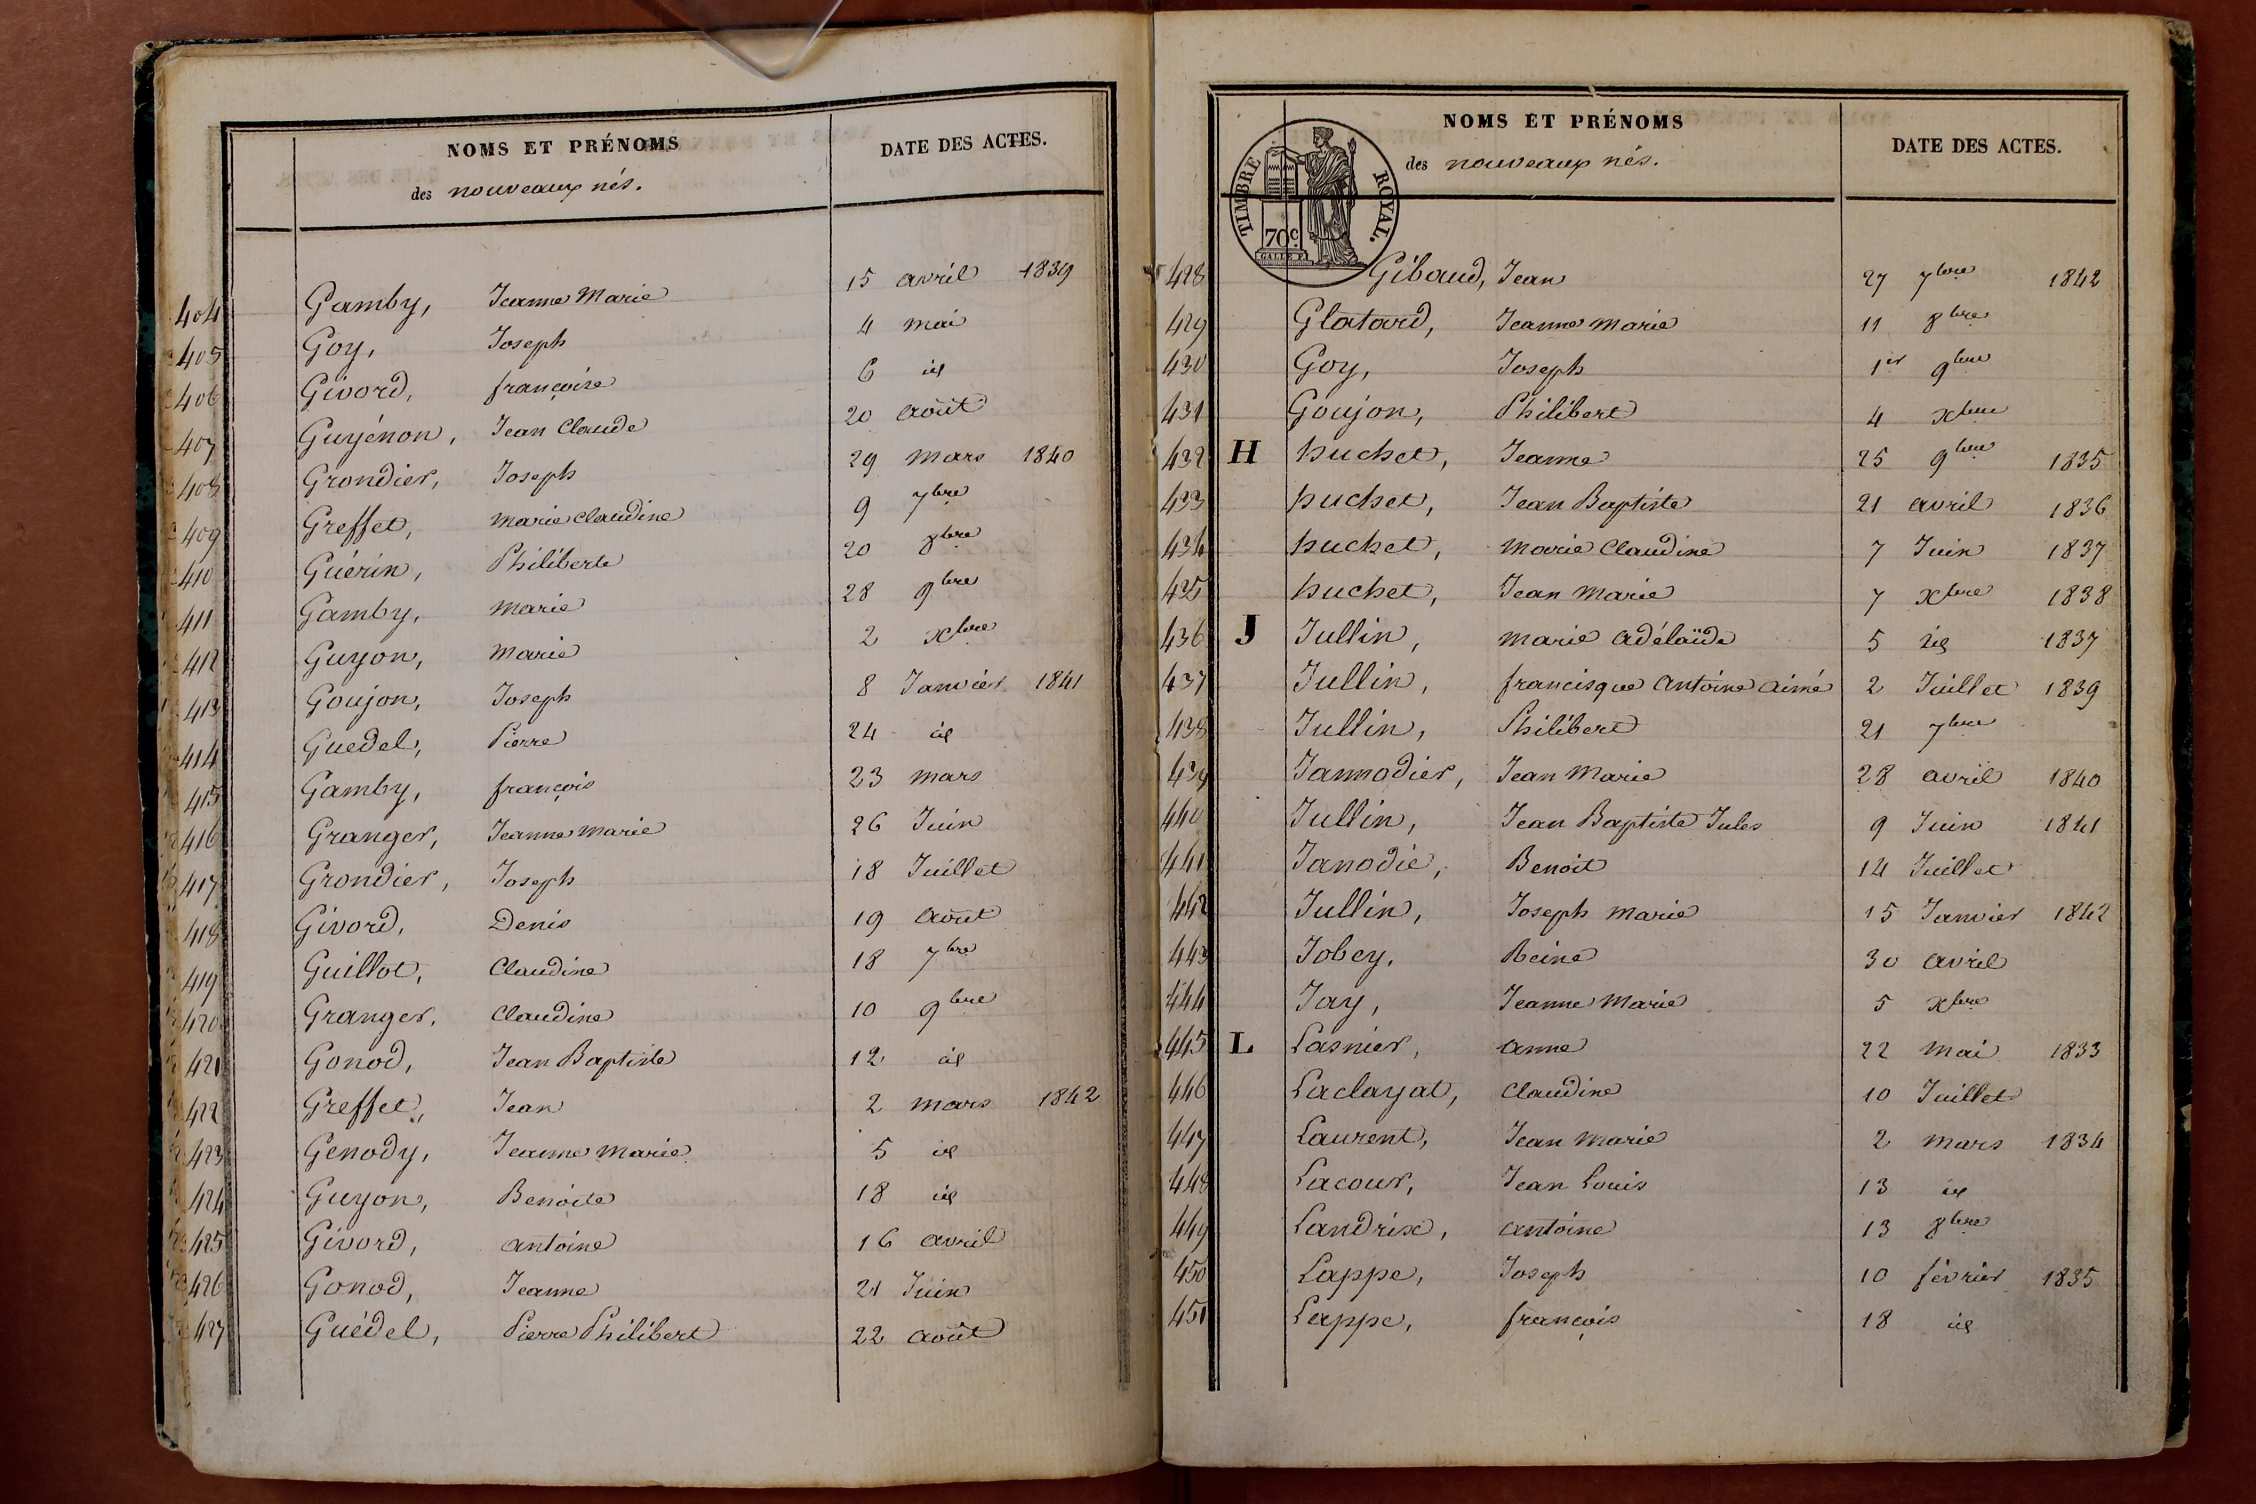 NOMS ET PRÉNOMS
DATE DES ACTES.
des nouveaux nés.
404 Gamby, Jeanne Marie 15 avril 1839
405 Goy, Joseph 4 mai
406 Givord, françoise 6 id
407 Guyénon, Jean Claude 20 août
408 Grondier, Joseph 29 mars 1840
409 Greffet, marie claudine 9 7bre
410 Guérin, Philiberte 20 8bre
411 Gamby, marie 28 9bre
412 Guyon, marie 2 xbre
413 Goujon, Joseph 8 Janvier 1841
414 Guedel, Pierre 24 id
415 Gamby, françois 23 mars
416 Granger, Jeanne marie 26 Juin
417 Grondier, Joseph 18 Juillet
418 Givord, Denis 19 août
419 Guillot, Claudine 18 7bre
420 Granger, Claudine 10 9bre
421 Gonod, Jean Baptiste 12 id
422 Greffet, Jean 2 mars 1842
423 Genody, Jeanne marie 5 id
424 Guyon, Benoite 18 id
425 Givord, antoine 16 avril
426 Gonod, Jeanne 21 Juin
427 Guédel, Pierre Philibert 22 août
NOMS ET PRÉNOMS
DATE DES ACTES.
des nouveaux nés.
TIMBRE ROYAL.
70c
428 Gibaud, Jean 27 7bre 1842
429 Glatard, Jeanne marie 11 8bre
430 Goy, Joseph 1er 9bre
431 Goujon, Philibert 4 xbre
432 H huchet, Jeanne 25 9bre 1835
433 huchet, Jean Baptiste 21 avril 1836
434 huchet, marie Claudine 7 Juin 1837
435 huchet, Jean Marie 7 xbre 1838
436 J Jullin, marie adélaïde 5 id 1837
437 Jullin, francisque antoine aimé 2 Juillet 1839
438 Jullin, Philibert 21 7bre
439 Jannodier, Jean Marie 28 avril 1840
440 Jullin, Jean Baptiste Jules 9 Juin 1841
441 Janodié, Benoit 14 Juillet
442 Jullin, Joseph marie 15 Janvier 1842
443 Jobey, Reine 30 avril
444 Jay, Jeanne Marie 5 xbre
445 L Lasnier, anne 22 mai 1833
446 Laclayat, Claudine 10 Juillet
447 Laurent, Jean marie 2 mars 1834
448 Lacour, Jean Louis 13 id
449 Landrix, antoine 13 8bre
450 Lappe, Joseph 10 février 1835
451 Lappe, françois 18 id